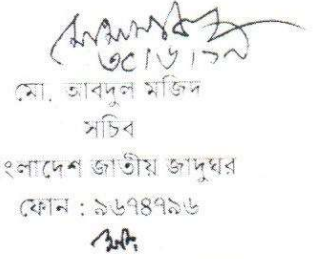 মো. আবদুল মজিদ
সচিব
ংলাদেশ জাতীয় জাদুঘর
ফোন : ৯৬৭৪৭৯৬